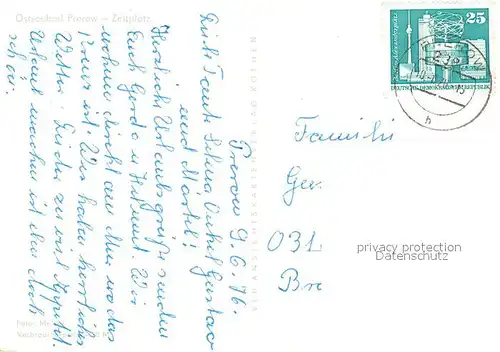 Ostseebad Prerow – Zeltplatz
Prerow 9.6.76.
Liebe Tante Selma Onkel Gustav
und Märtel!
Herzliche Urlaubsgrüße senden
Euch Gerda u. Helmut. Wir
wohnen direkt am Meer wo das
Kreuz ist. Wir haben herrliches
Wetter. Leider zu viel Appetit.
Urlaub machen ist eben doch
schön.
25
DEUTSCHE DEMOKRATISCHE REPUBLIK
Familie
Ger
031
Bre
privacy protection
Datenschutz